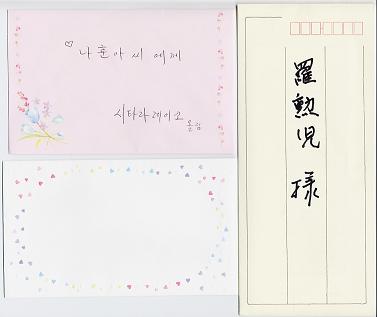 ♡ 나 훈 아 씨 에 께
시타라레이코
올림
羅勲児 様